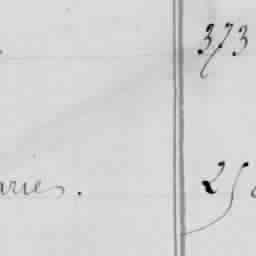 373
aries. 25